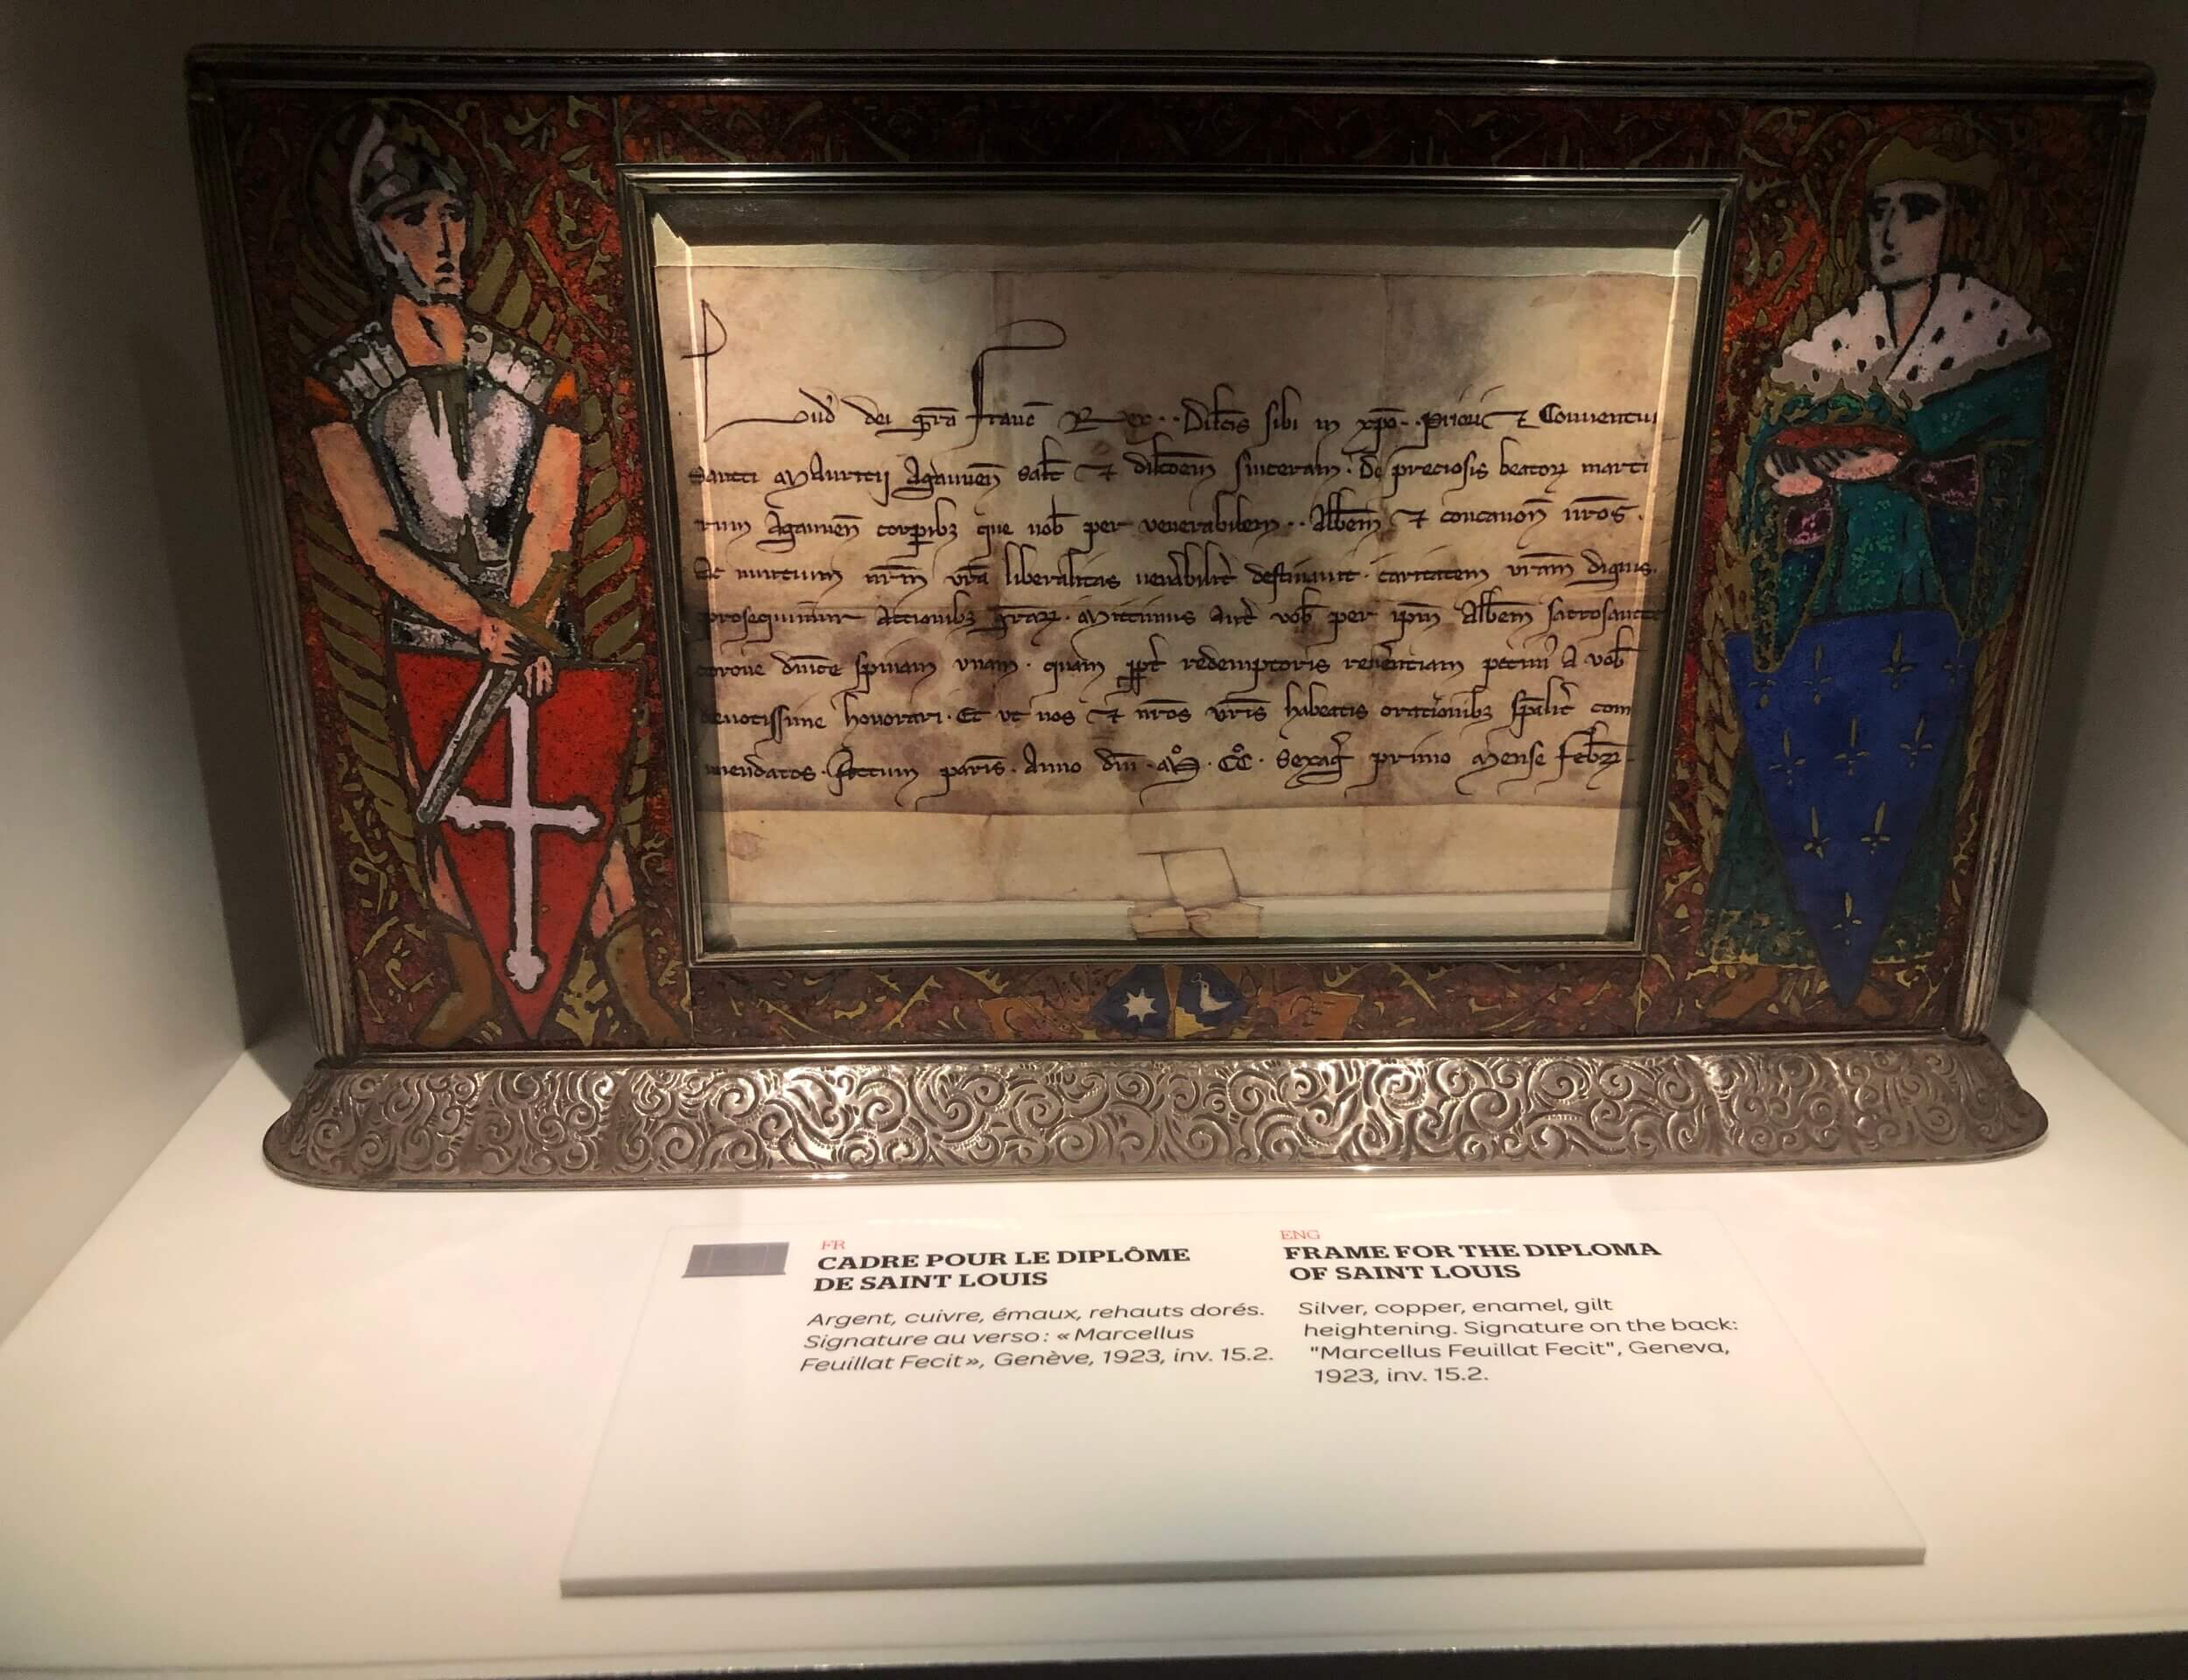 Lud dei gra Franc Rex. Dilcis sibi in xpo. Priori et Conventui
Sancti Mauricij Agaunen salt et dilcoem sinceram. De preciosis beator marti
rum Agaunen corpibz que nob per venerabilem Abbem et concanon nros.
Ac nuncium nrm vra liberalitas venibilit destinavit. caritatem vram dignis
prosequimur actionibz grar. Mittimus aut vob per ipm Abbem sacrosancte
corone dnice spinam unam. quam ppt redemptoris revenciam petim a vob
devotissime honorari. Et ut nos et nros vris habeatis orationibz spalit com
mendatos. Actum paris. Anno dni. M. CC. Sexag primo Mense Febr.
FR
CADRE POUR LE DIPLÔME
DE SAINT LOUIS
Argent, cuivre, émaux, rehauts dorés.
Signature au verso : « Marcellus
Feuillat Fecit », Genève, 1923, inv. 15.2.
ENG
FRAME FOR THE DIPLOMA
OF SAINT LOUIS
Silver, copper, enamel, gilt
heightening. Signature on the back:
"Marcellus Feuillat Fecit", Geneva,
1923, inv. 15.2.